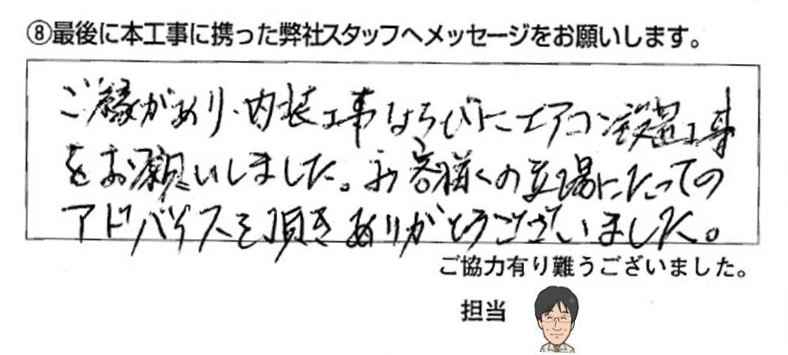 ⑧最後に本工事に携った弊社スタッフへメッセージをお願いします。
ご縁があり、内装工事ならびにエアコン設置工事
をお願いしました。お客様の立場にたっての
アドバイスを頂きありがとうございました。
ご協力有り難うございました。
担当